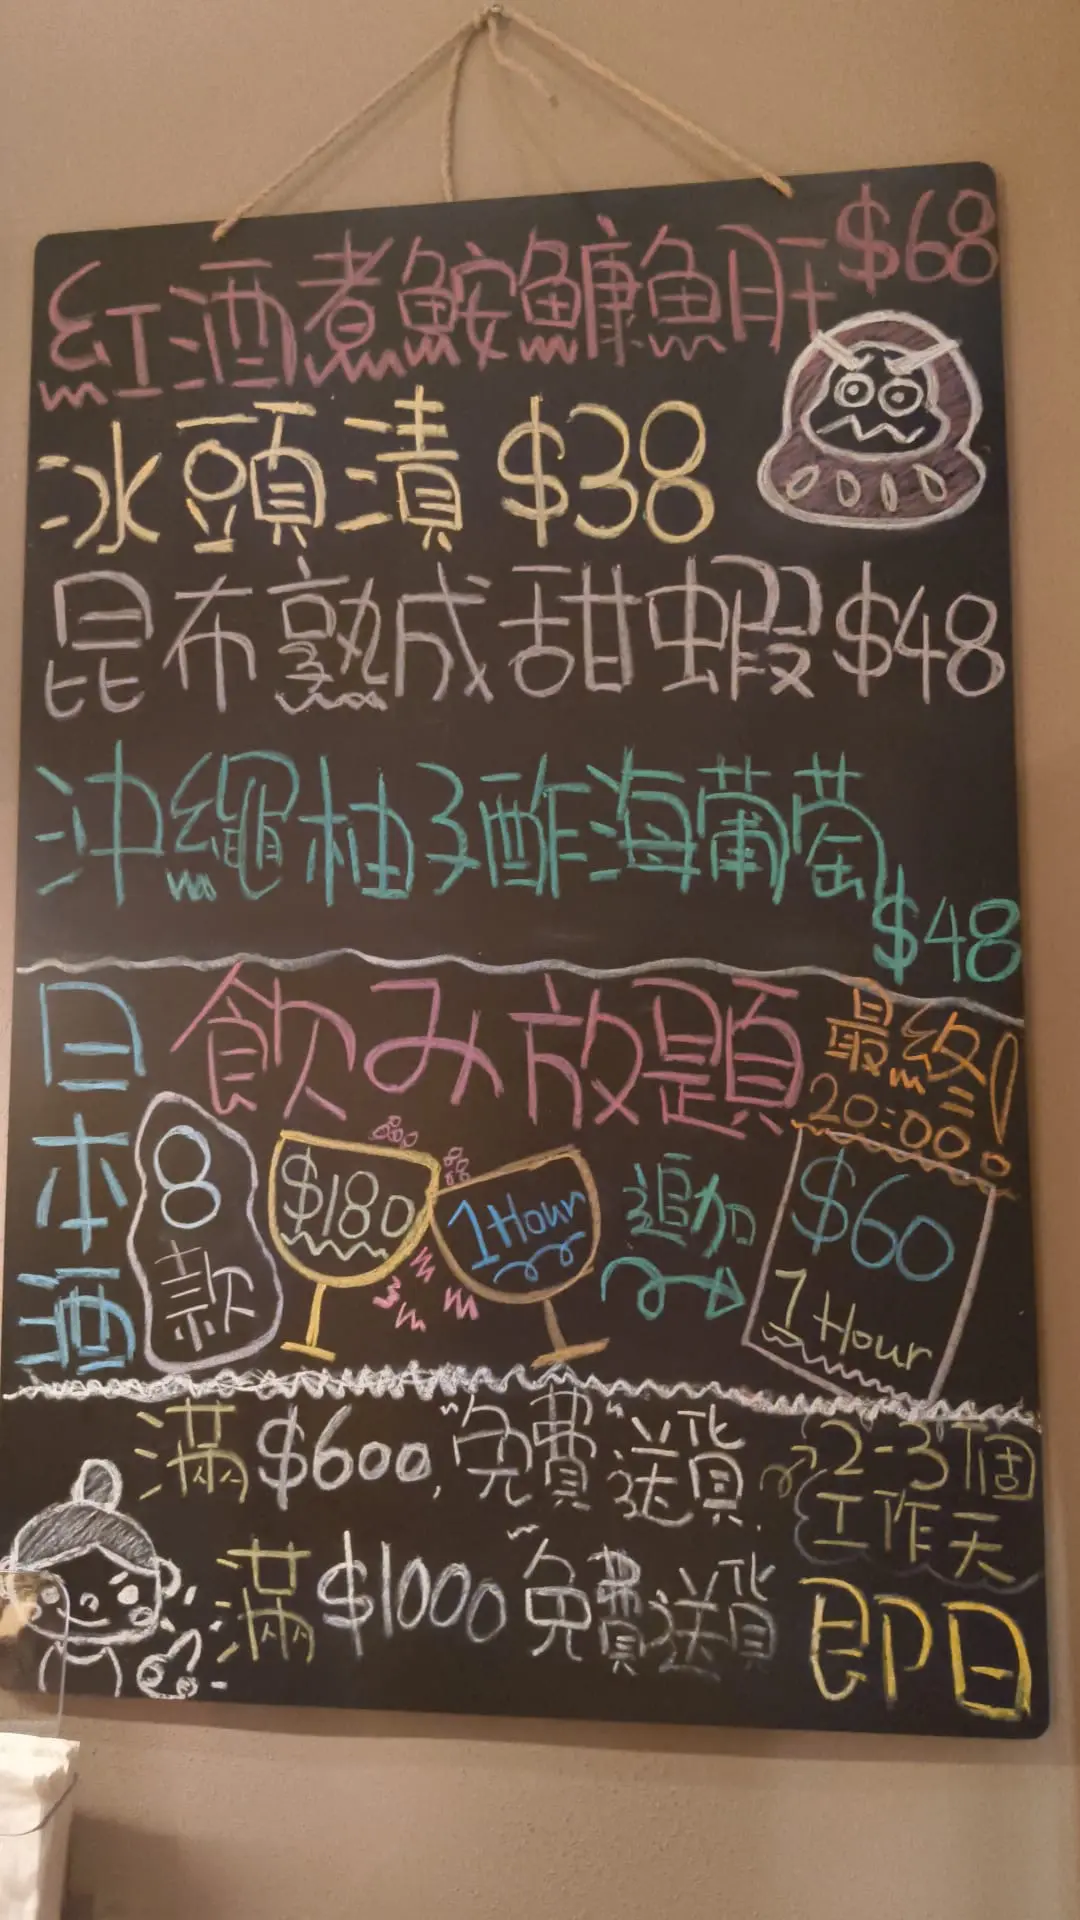 紅酒煮鮟鱇魚肝 $68
冰頭漬 $38
昆布熟成甜蝦 $48
沖繩柚子酢海葡萄
$48
日本酒
飲み放題
最終!
20:00
8款
$180
1 Hour
追加
$60
1 Hour
滿$600,"免費"送貨.
2-3個
工作天
滿$1000"免費"送貨
即日